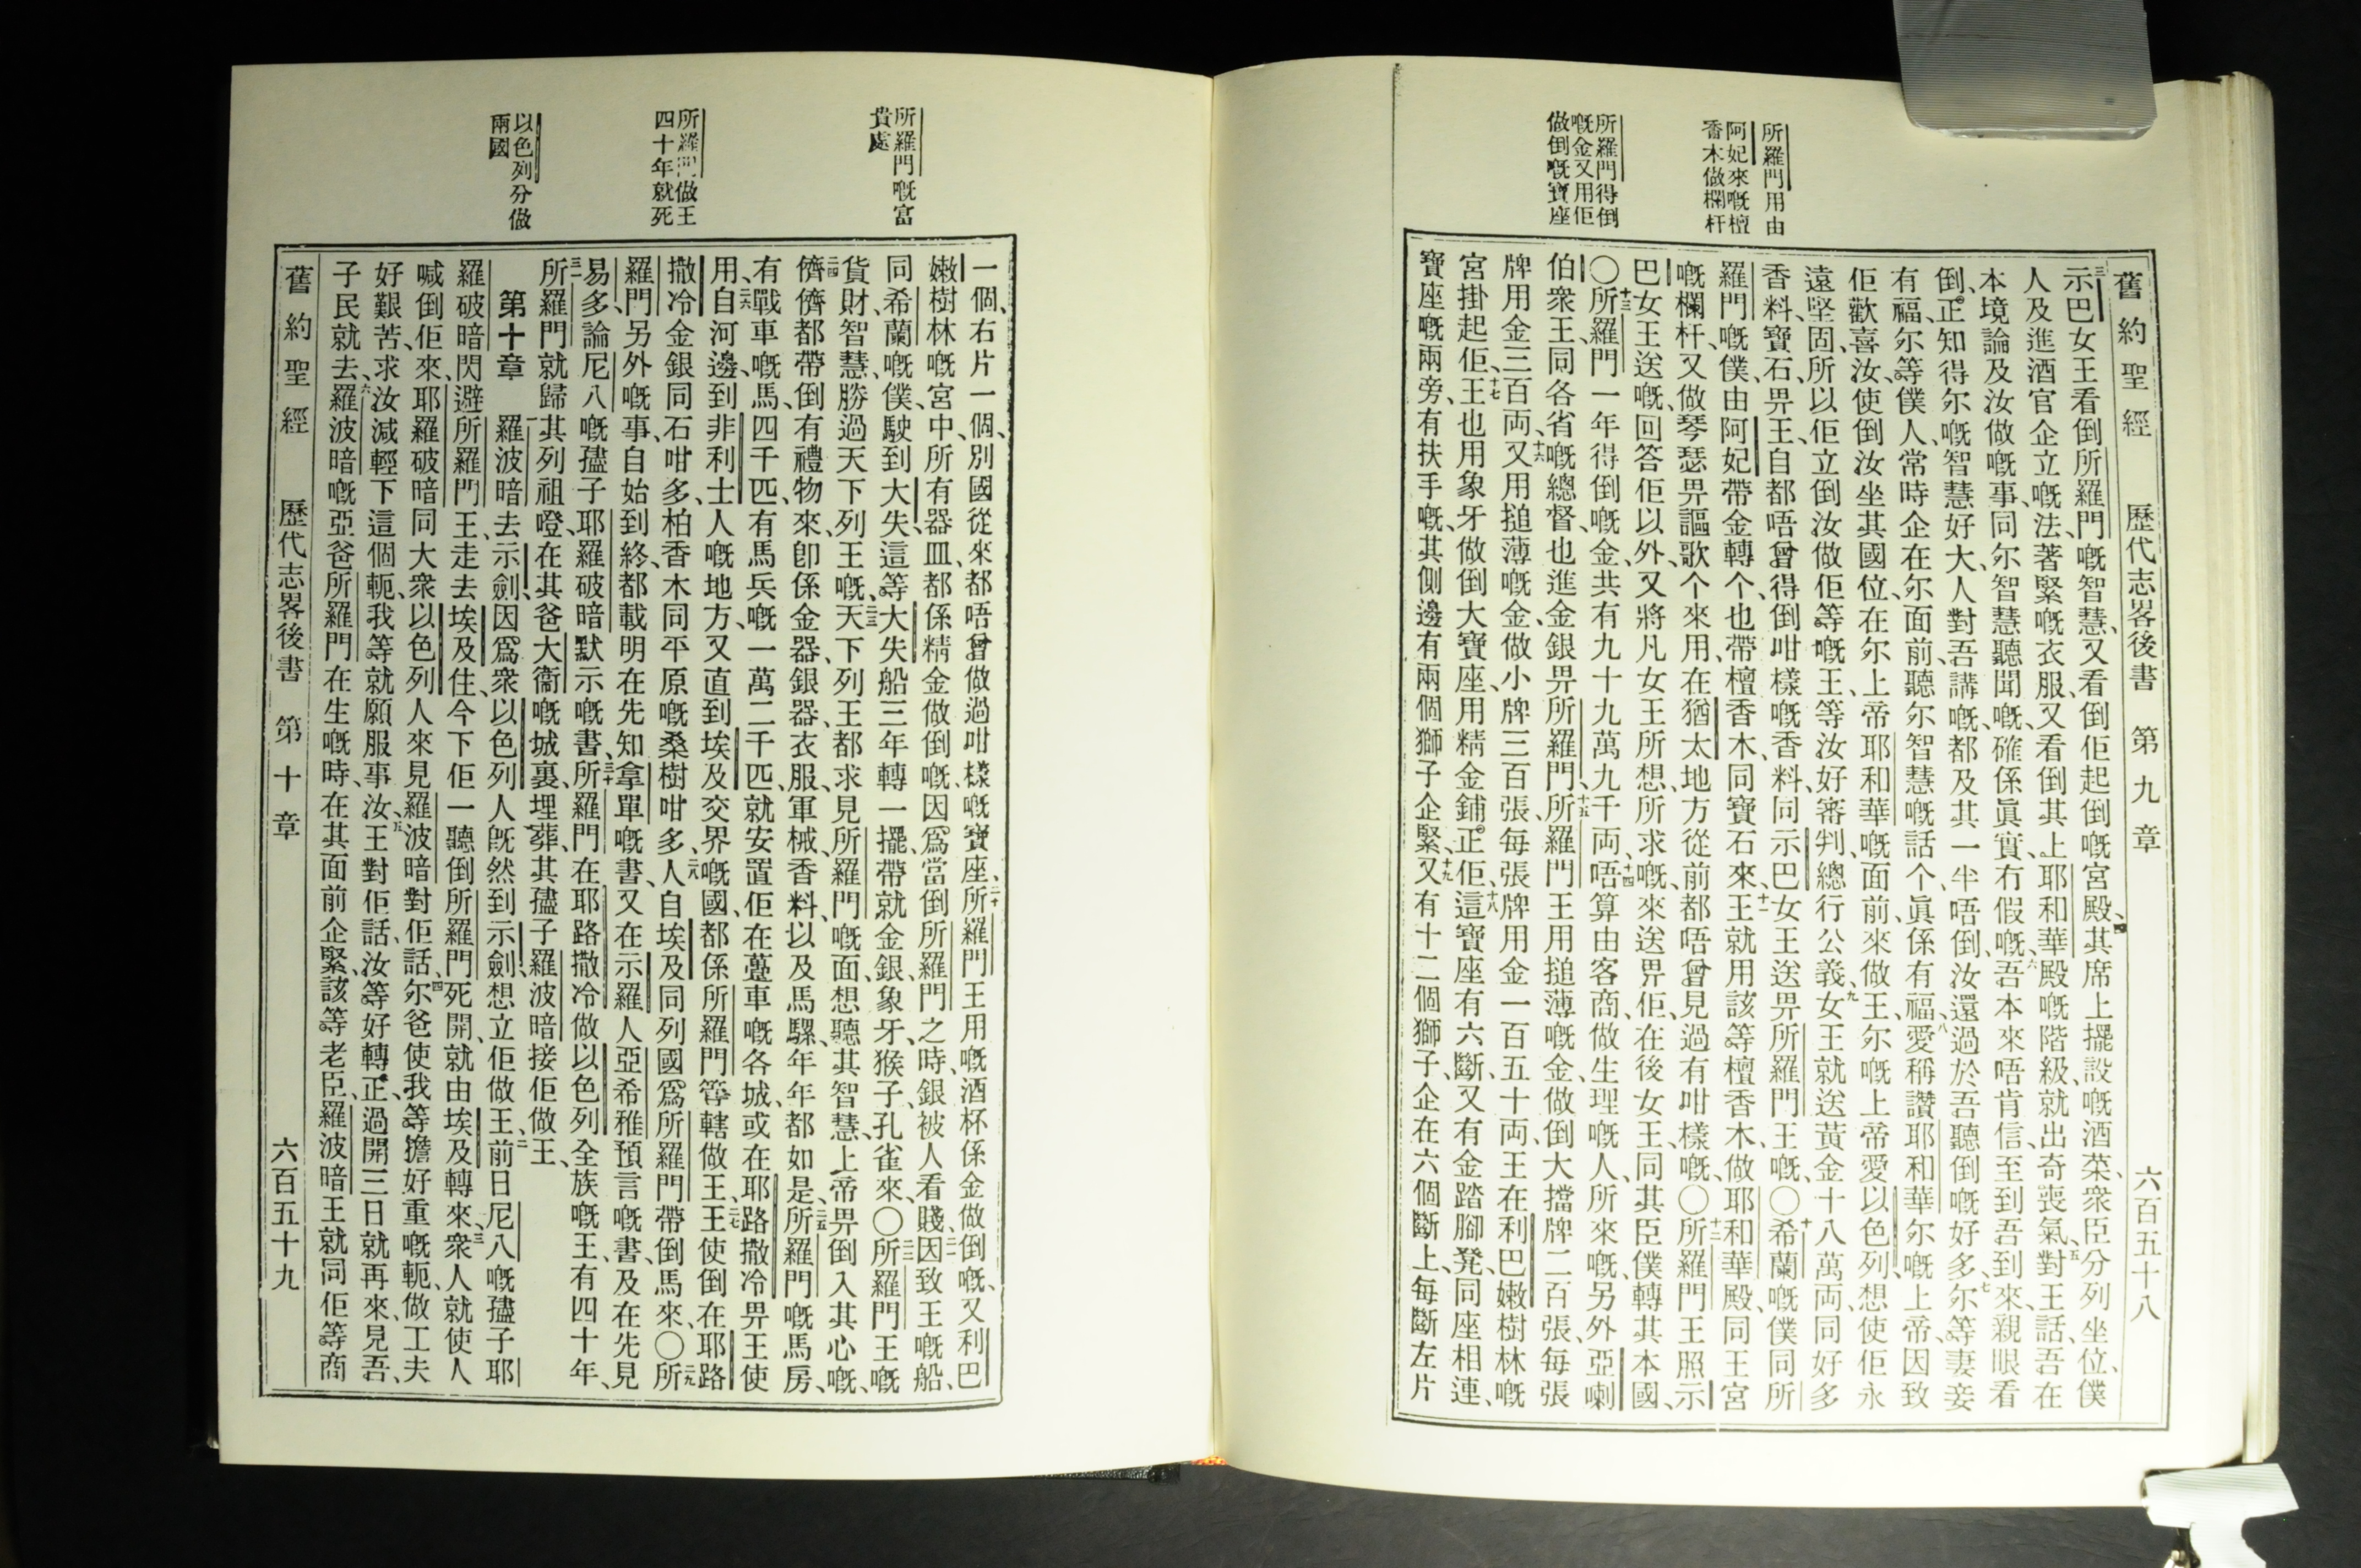 舊約聖經　歷代志畧後書　第九章　六百五十八
所羅門用由
阿妃來嘅檀
香木做欄杆
所羅門得倒
嘅金又用佢
做倒嘅寶座
三示巴女王看倒所羅門嘅智慧、又看倒佢起倒嘅宮殿、四其席上擺設嘅酒菜、衆臣分列坐位、僕
人及進酒官企立嘅法、著緊嘅衣服、又看倒其上耶和華殿嘅階級、就出奇喪氣、五對王話、吾在
本境論及汝做嘅事、同尔智慧聽聞嘅、確係眞實、冇假嘅、六吾本來唔肯信、至到吾到來、親眼看
倒、正知得尔嘅智慧好大、人對吾講嘅、都及其一半唔倒、汝還過於吾聽倒嘅好多、七尔等妻妾
有福、尔等僕人、常時企在尔面前、聽尔智慧嘅話个、眞係有福、八愛稱讚耶和華尔嘅上帝、因致
佢歡喜汝、使倒汝坐其國位、在尔上帝耶和華嘅面前、來做王、尔嘅上帝愛以色列、想使佢永
遠堅固、所以佢立倒汝做佢等嘅王、等汝好審判、總行公義、九女王就送黃金十八萬両、同好多
香料、寶石、畀王、自都唔曾得倒咁樣嘅香料、同示巴女王送畀所羅門王嘅、〇十希蘭嘅僕同所
羅門嘅僕、由阿妃帶金轉个、也帶檀香木、同寶石來、十一王就用該等檀香木、做耶和華殿、同王宮
嘅欄杆、又做琴瑟畀謳歌个來用、在猶太地方從前都唔曾見過有咁樣嘅、〇十二所羅門王照示
巴女王送嘅、回答佢以外、又將凡女王所想、所求嘅、來送畀佢、在後女王、同其臣僕轉其本國、
〇十三所羅門一年得倒嘅金、共有九十九萬九千両、十四唔算由客商、做生理嘅人、所來嘅、另外亞喇
伯衆王、同各省嘅總督、也進金銀畀所羅門、十五所羅門王用搥薄嘅金、做倒大擋牌二百張、每張
牌用金三百両、十六又用搥薄嘅金、做小牌三百張、每張牌用金一百五十両、王在利巴嫩樹林嘅
宮掛起佢、十七王也用象牙做倒大寶座、用精金鋪正佢、十八這寶座有六斷、又有金踏腳凳、同座相連、
寶座嘅兩旁、有扶手嘅、其側邊有兩個獅子企緊、十九又有十二個獅子、企在六個斷上、每斷左片
所羅門嘅富
貴處
所羅門做王
四十年就死
以色列分做
兩國
一個、右片一個、別國從來都唔曾做過咁樣嘅寶座、二十所羅門王用嘅酒杯係金做倒嘅、又利巴
嫩樹林嘅宮中、所有器皿都係精金做倒嘅、因爲當倒所羅門之時、銀被人看賤、二一因致王嘅船、
同希蘭嘅僕、駛到大失、這等大失船三年轉一擺、帶就金、銀、象牙、猴子、孔雀來、〇二二所羅門王嘅
貨財、智慧、勝過天下列王嘅、二三天下列王都求見所羅門嘅面、想聽其智慧、上帝畀倒入其心嘅、
二四儕儕都帶倒有禮物來、卽係金器、銀器、衣服、軍械、香料、以及馬騾、年年都如是、二五所羅門嘅馬房、
有戰車嘅馬、四千匹、有馬兵嘅一萬二千匹、就安置佢在躉車嘅各城、或在耶路撒冷畀王使
用、二六自河邊、到非利士人嘅地方、又直到埃及交界嘅國、都係所羅門管轄做王、二七王使倒在耶路
撒冷金銀同石咁多、柏香木同平原嘅桑樹咁多、二八人自埃及同列國、爲所羅門帶倒馬來、〇二九所
羅門另外嘅事、自始到終、都載明在先知拿單嘅書、又在示羅人亞希稚預言嘅書、及在先見
易多、論尼八嘅孻子耶羅破暗默示嘅書、三十所羅門在耶路撒冷做以色列全族嘅王、有四十年、
三一所羅門就歸其列祖嘅、在其爸大衞嘅城裏埋葬、其孻子羅波暗接佢做王、
第十章　一羅波暗去示劍、因爲衆以色列人旣然到示劍想立佢做王、二前日尼八嘅孻子耶
羅破暗閃避所羅門王、走去埃及住、今下佢一聽倒所羅門死開、就由埃及轉來、三衆人就使人
喊倒佢來、耶羅破暗同大衆以色列人來見羅波暗對佢話、四尔爸使我等擔好重嘅軛、做工夫
好艱苦、求汝減輕下這個軛、我等就願服事汝、五王對佢話、汝等好轉正、過開三日就再來、見吾、
子民就去、六羅波暗嘅亞爸所羅門在生嘅時、在其面前企緊、該等老臣、羅波暗王就同佢等商
舊約聖經　歷代志畧後書　第十章　六百五十九